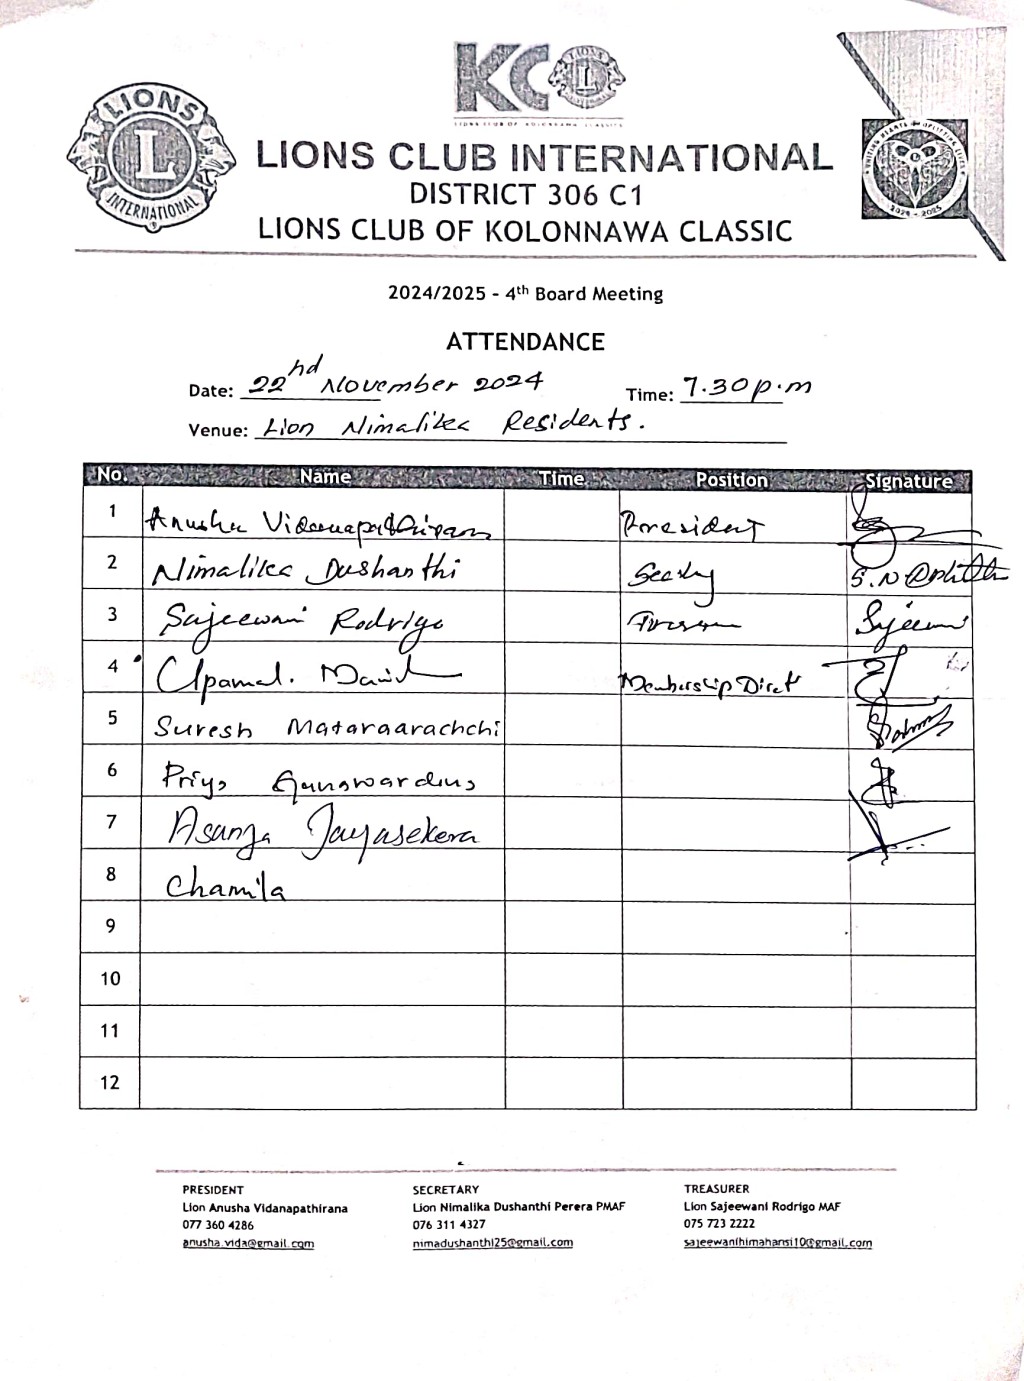 KC
LIONS
L
LIONS CLUB OF KOLONNAWA CLASSIC
LIONS
L
INTERNATIONAL
LIONS CLUB INTERNATIONAL
DISTRICT 306 C1
LIONS CLUB OF KOLONNAWA CLASSIC
UNITING HEARTS UPLIFTING LIVES
2024 - 2025
2024/2025 - 4th Board Meeting
ATTENDANCE
Date: 22nd November 2024 Time: 7.30 p.m
Venue: Lion Nimalika Residents.
No. Name Time Position Signature
1 Anusha Vidanapathirana President
2 Nimalika Dushanthi Secty
3 Sajeewani Rodrigo
4 Upamal. Membership Direct
5 Suresh Mataraarachchi
6 Priya Gunawardena
7 Asanga Jayasekera
8 Chamila
9
10
11
12
PRESIDENT SECRETARY TREASURER
Lion Anusha Vidanapathirana Lion Nimalika Dushanthi Perera PMAF Lion Sajeewani Rodrigo MAF
077 360 4286 076 311 4327 075 723 2222
anusha.vida@gmail.com nimadushanthi25@gmail.com sajeewanihimahansi10@gmail.com